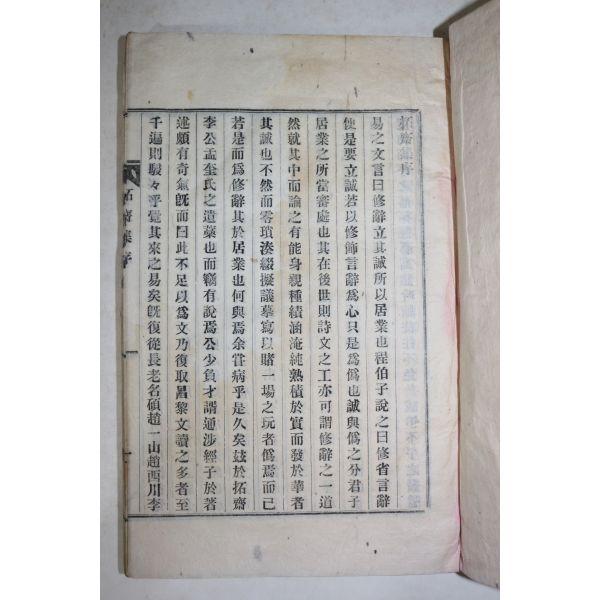 拓齋集序
易之文言曰修辭立其誠所以居業也程伯子說之曰修省言辭
便是要立誠若以修飾言辭爲心只是爲僞也誠與僞之分君子
居業之所當審處也其在後世則詩文之工亦可謂修辭之一道
然就其中而論之有能身親種績涵淹純熟積於實而發於華者
其誠也不然而零瑣湊綴擬議摹寫以賭一場之玩者僞焉而已
若是而爲修辭其於居業也何與焉余甞病乎是久矣玆於拓齋
李公孟奎氏之遺藁也而竊有說焉公少負才謂通涉經子於著
述頗有奇氣旣而曰此不足以爲文乃復取昌黎文讀之多者至
千遍則駸々乎覺其來之易矣旣復從長老名碩趙一山趙西川李
拓齋集序
一